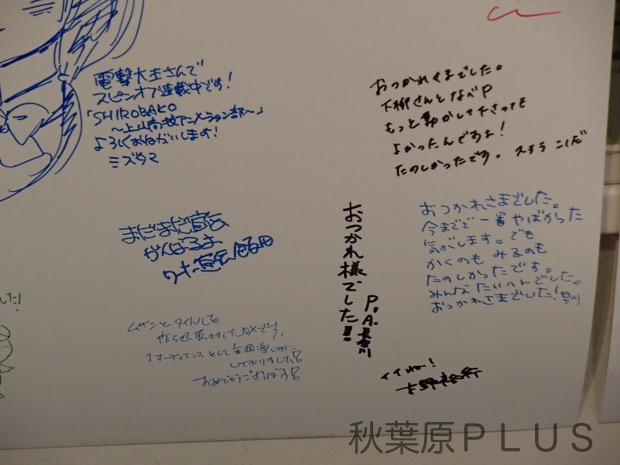 電撃大王さんで
スピンオフ連載中です!
「SHIROBAKO
～上山高校アニメーション部～」
よろしくおねがいします!
ミズタマ
おつかれさまでした。
下柳さんとなべP
もっと動かして下さっても
よかったんですよ!
たのしかったです。
まだまだ宣伝
がんばるよ
おつかれ様でした!!
P.A.
おつかれさまでした。
今までで一番やばかった
気がします。でも
かくのも みるのも
たのしかったです。
みんなたいへんでした。
おつかれさまでした!
ムサニとタイトルを
1オーディエンスとして毎週楽しみに
しておりました
おめでとうございます
イイネ!
秋葉原PLUS